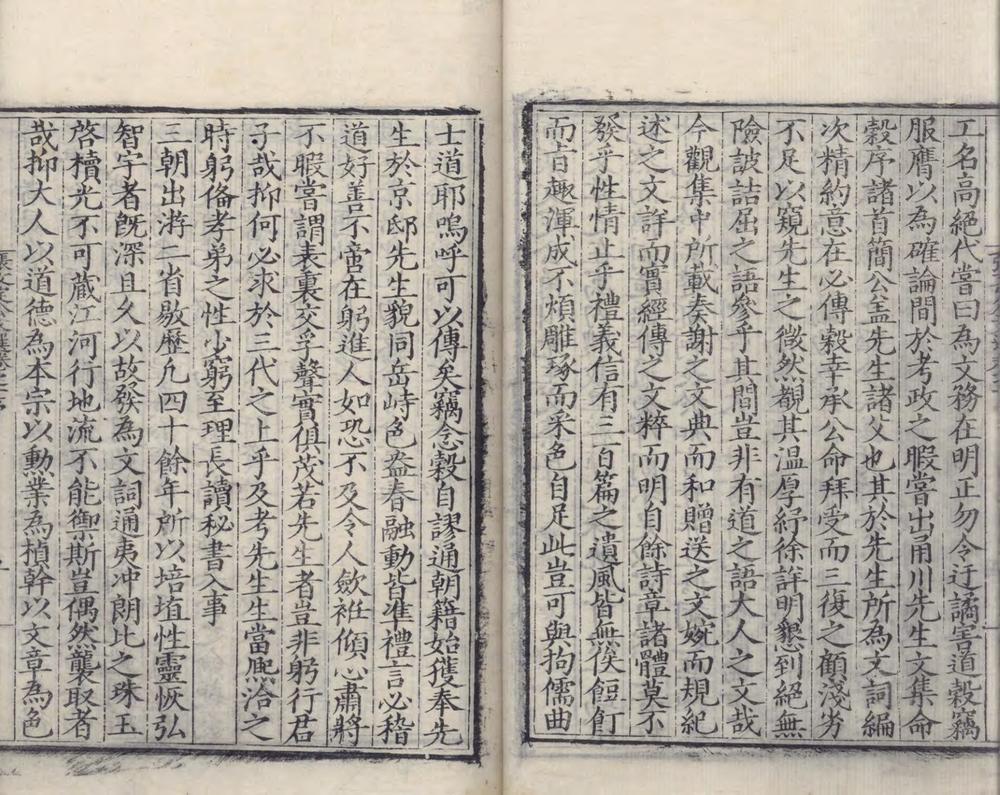 工名高絕代嘗曰為文務在明正勿令迂譎害道穀竊
服膺以為確論間於考政之暇嘗出甬川先生文集命
穀序諸首簡公盖先生諸父也其於先生所為文詞編
次精約意在必傳穀幸承公命拜受而三復之顧淺劣
不足以窺先生之徴然覩其温厚紓徐詳明懇到絕無
險詖詰屈之語參乎其間豈非有道之語大人之文哉
今觀集中所載奏謝之文典而和贈送之文婉而規紀
述之文詳而實經傳之文粹而明自餘詩章諸體莫不
發乎性情止乎禮義信有三百篇之遺風皆無俟飣
而㫖趣渾成不煩雕琢而采色自足此豈可與拘儒曲
士道耶嗚呼可以傳矣竊念穀自謬通朝籍始獲奉先
生於京邸先生貌同岳峙色盎春融動皆凖禮言必稽
道好善不啻在躬進人如恐不及令人歛袵傾心肅將
不暇嘗謂表裏交孚聲實俱茂若先生者豈非躬行君
子哉抑何必求於三代之上乎及考先生生當熈洽之
時躬偹孝弟之性少窮至理長讀秘書入事
三朝出㳺二省敭歷凢四十餘年所以培埴性靈恢弘
智宇者旣深且久以故發為文詞通夷冲朗比之珠玉
啓櫝光不可蔵江河行地流不能禦斯豈偶然襲取者
哉抑大人以道德為本宗以勲業為楨幹以文章為色